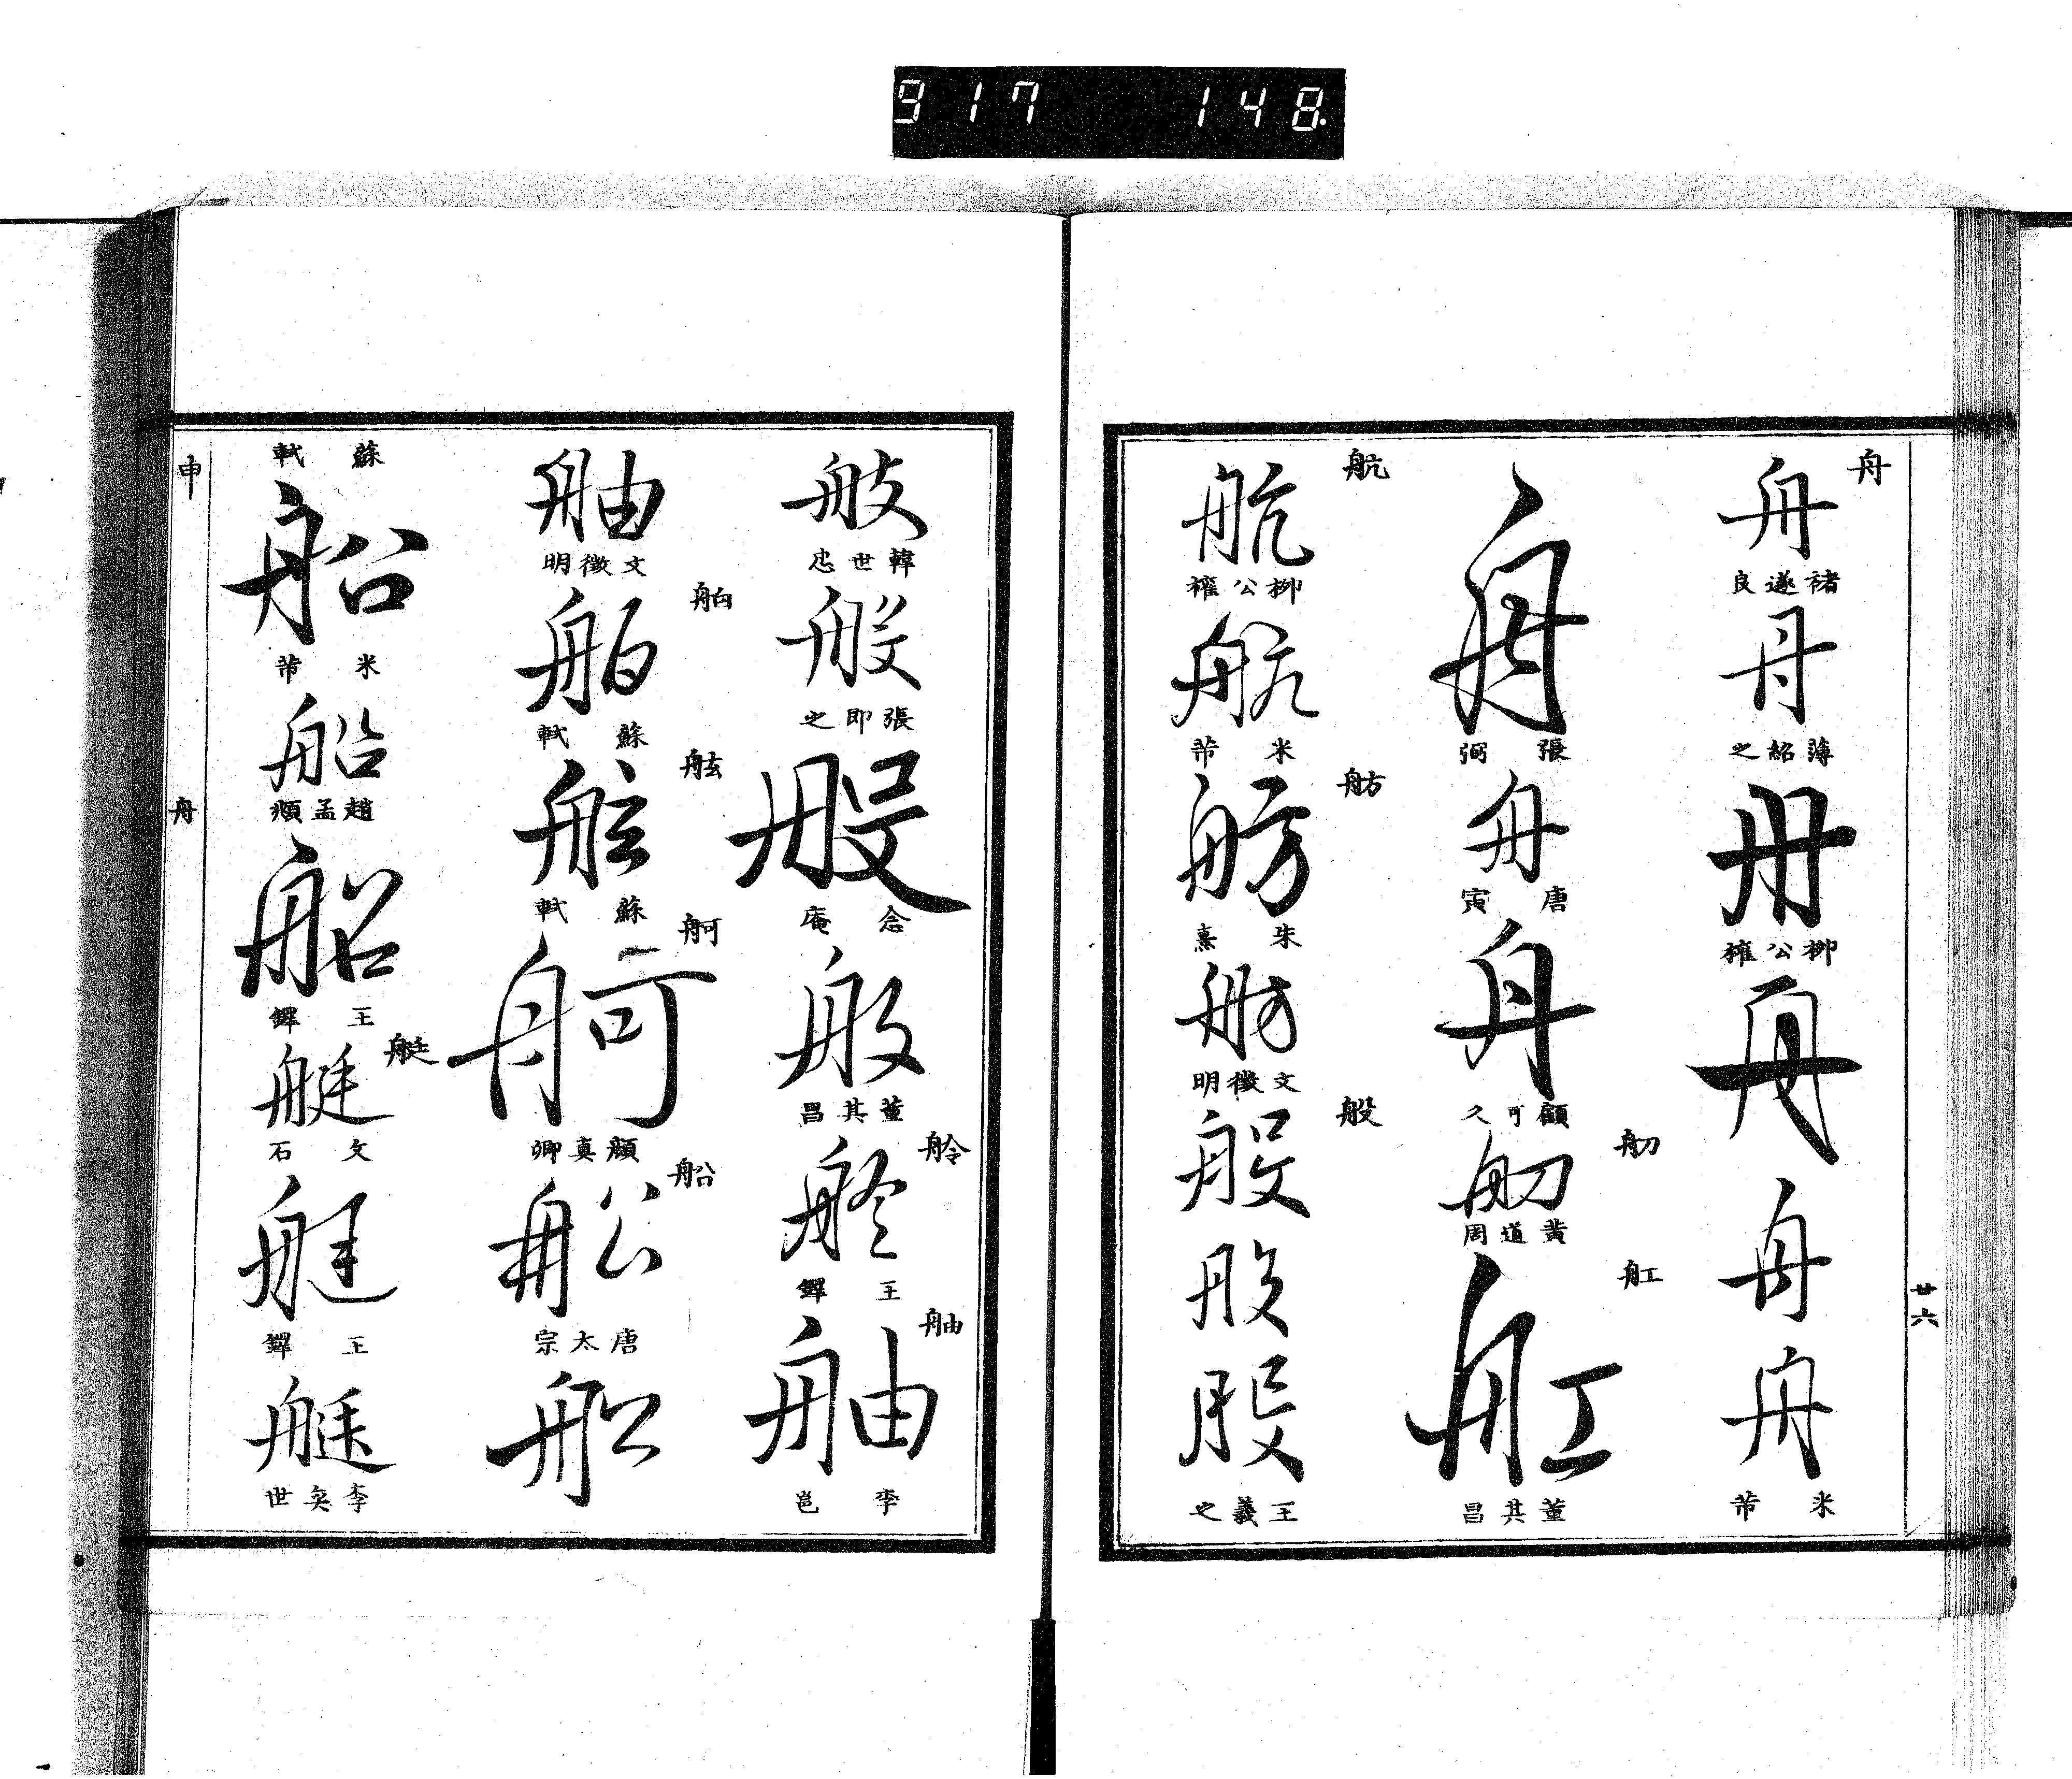 917 148.
廿六
舟
舟
褚遂良
舟
薄紹之
舟
柳公権
舟
舟
舟
米芾
舟
張弼
舟
唐寅
舟
顧可久
舠
黄道周
舡
舡
董其昌
航
航
柳公権
航
米芾
舫
舫
朱熹
舫
文徴明
般
般
般
般
王羲之
般
韓世忠
般
張即之
般
念庵
般
董其昌
舲
舲
王鐸
舳
舳
李邕
舳
文徴明
舶
舶
蘇軾
舷
舷
蘇軾
舸
舸
顔真卿
船
船
唐太宗
船
蘇軾
船
米芾
船
趙孟頫
船
王鐸
艇
艇
文石
艇
王鐸
艇
李奕世
申
舟